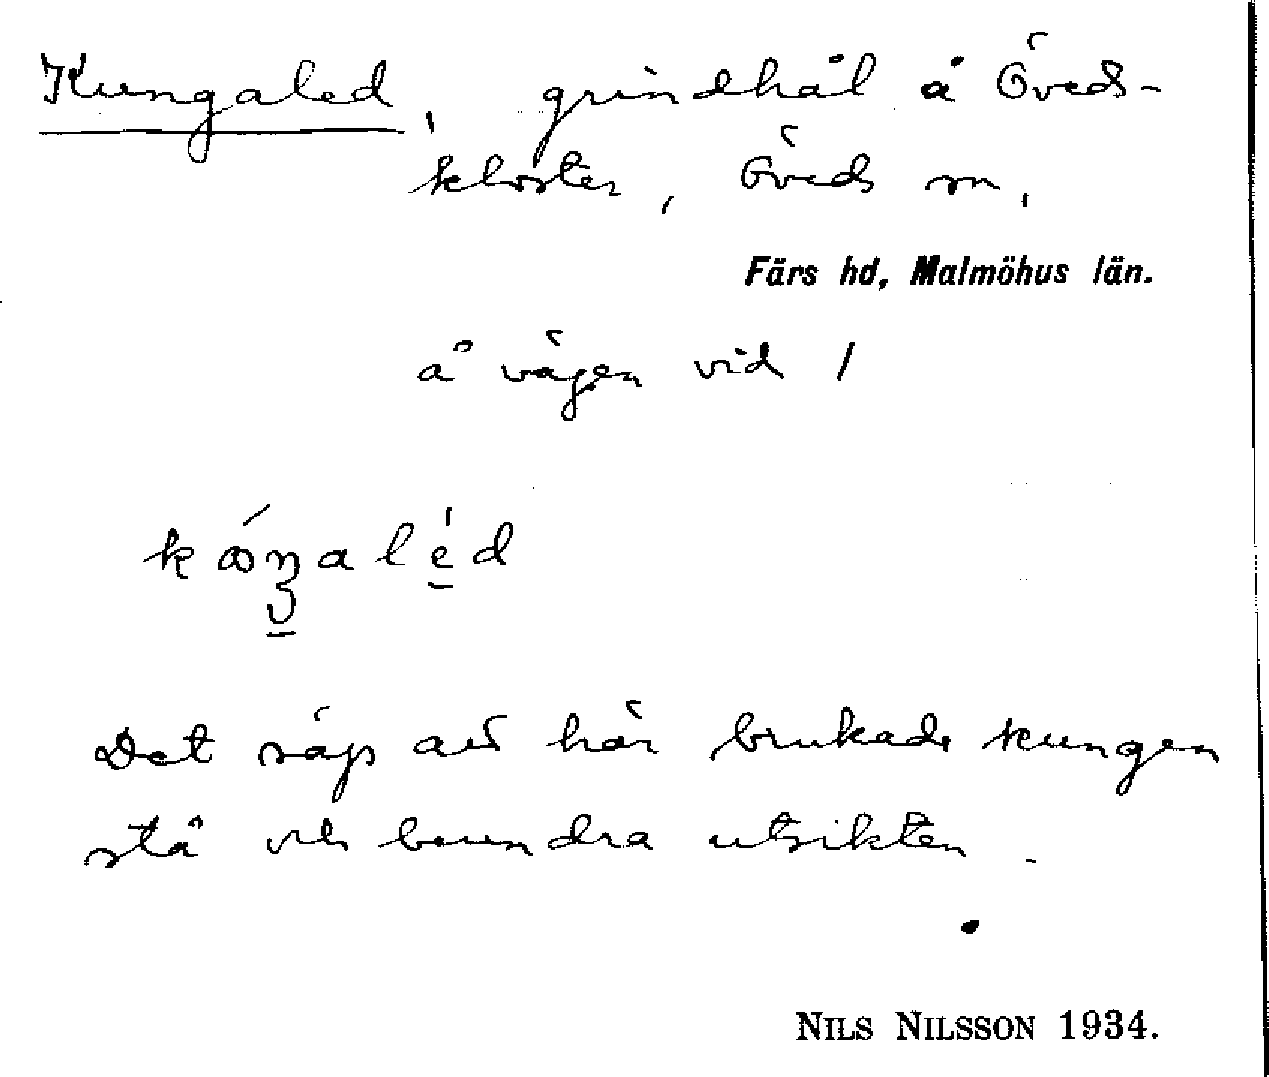 Kungaled, grindhål å Öveds-
kloster, Öveds sn,
Färs hd, Malmöhus län.
å vägen vid /
Det säges att här brukade kungen
stå och beundra utsikten.
NILS NILSSON 1934.